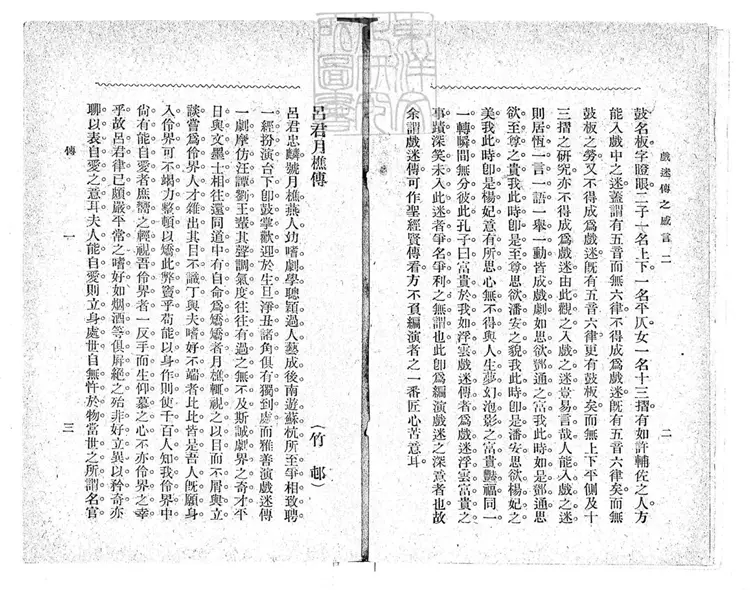 戲迷傳之感言 二
二
鼓名板字瞪眼二子一名上下一名平仄女一名十三摺有如許輔佐之人方
能入戲中之迷蓋謂有五音而無六律不得成爲戲迷旣有五音六律矣而無
鼓板之勞又不得成爲戲迷旣有五音六律更有鼓板矣而無上下平側及十
三摺之硏究亦不得成爲戲迷由此觀之入戲之迷豈易言哉人能入戲之迷
則居恆一言一語一舉一動皆成戲劇如思欲鄧通之富我此時如是鄧通思
欲至尊之貴我此時卽是至尊思欲潘安之貌我此時卽是潘安思欲楊妃之
美我此時卽是楊妃意有所思心無不得與人生夢幻泡影之富貴豔福同一
一轉瞬間無分彼此孔子曰富貴於我如浮雲戲迷傳者爲戲迷浮雲富貴之
事蹟深笑未入此迷者爭名爭利之無謂也此卽爲編演戲迷之深意者也故
余謂戲迷傳可作聖經賢傳看方不負編演者之一番匠心苦意耳
呂君月樵傳
(竹邨)
呂君忠驎號月樵燕人幼嗜劇學聰穎過人藝成後南遊蘇杭所至爭相致聘
一經扮演台下卽鼓掌歡迎於生旦淨丑諸角俱有獨到處而雅善演戲迷傳
一劇摩仿汪譚劉王輩其聲調氣度往往有過之無不及斯誠劇界之奇才平
日與文墨士相往還同道中有自命爲矯矯者月樵輒視之以目而不屑與立
談嘗爲伶界人才雜出其目不識丁與夫嗜好不端者比比皆是吾人旣願身
入伶界可不竭力整頓以矯此弊竇乎苟能以身作則使千百人知我伶界中
尙有能自愛者庶嚮之輕視吾伶界者一反手而生仰慕之心不亦伶界之幸
乎故呂君律已頗嚴平常之嗜好如烟酒等俱屛絕之殆非好立異以矜奇亦
聊以表自愛之意耳夫人能自愛則立身處世自無忤於物當世之所謂名官
傳 一
三